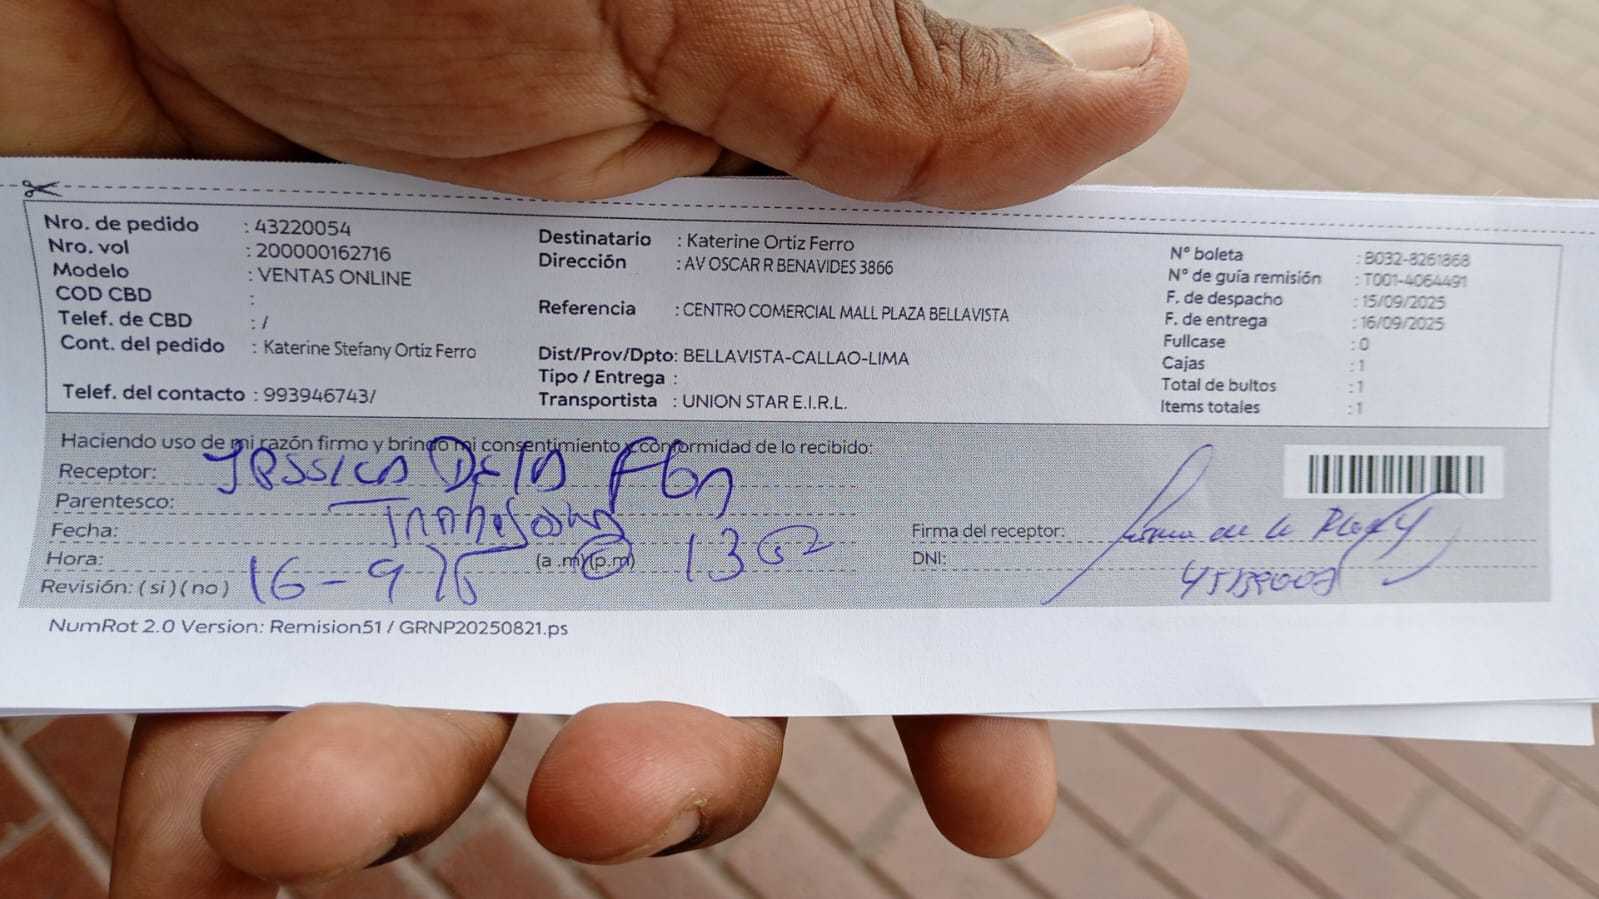 Nro. de pedido : 43220054
Nro. vol : 200000162716
Modelo : VENTAS ONLINE
COD CBD :
Telef. de CBD : /
Cont. del pedido : Katerine Stefany Ortiz Ferro
Telef. del contacto : 993946743/
Destinatario : Katerine Ortiz Ferro
Dirección : AV OSCAR R BENAVIDES 3866
Referencia : CENTRO COMERCIAL MALL PLAZA BELLAVISTA
Dist/Prov/Dpto: BELLAVISTA-CALLAO-LIMA
Tipo / Entrega :
Transportista : UNION STAR E.I.R.L.
N° boleta : B032-8261868
N° de guía remisión : T001-4064491
F. de despacho : 15/09/2025
F. de entrega : 16/09/2025
Fullcase : 0
Cajas : 1
Total de bultos : 1
Items totales : 1
Haciendo uso de mi razón firmo y brindo mi consentimiento y conformidad de lo recibido:
Receptor: Jessica De la
Parentesco:
Fecha:
Hora: 16-9 (a.m)(p.m) 13
Revisión: ( si ) ( no )
Firma del receptor: de la
DNI:
NumRot 2.0 Version: Remision51 / GRNP20250821.ps